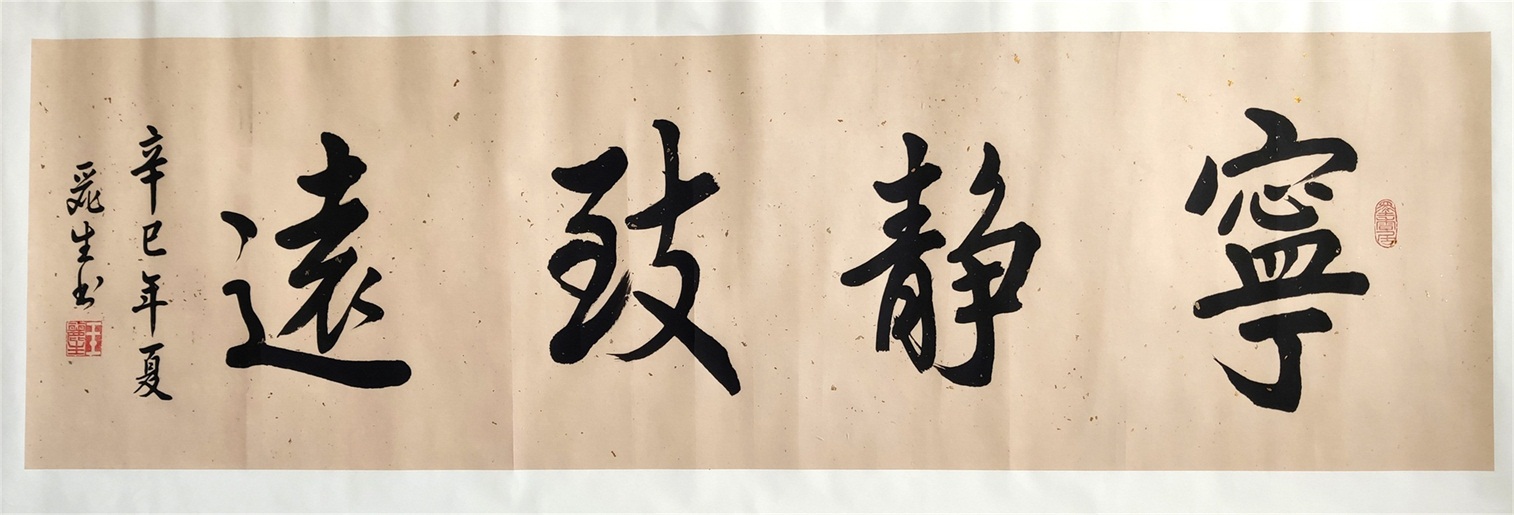 寧靜致遠
辛巳年夏
生书